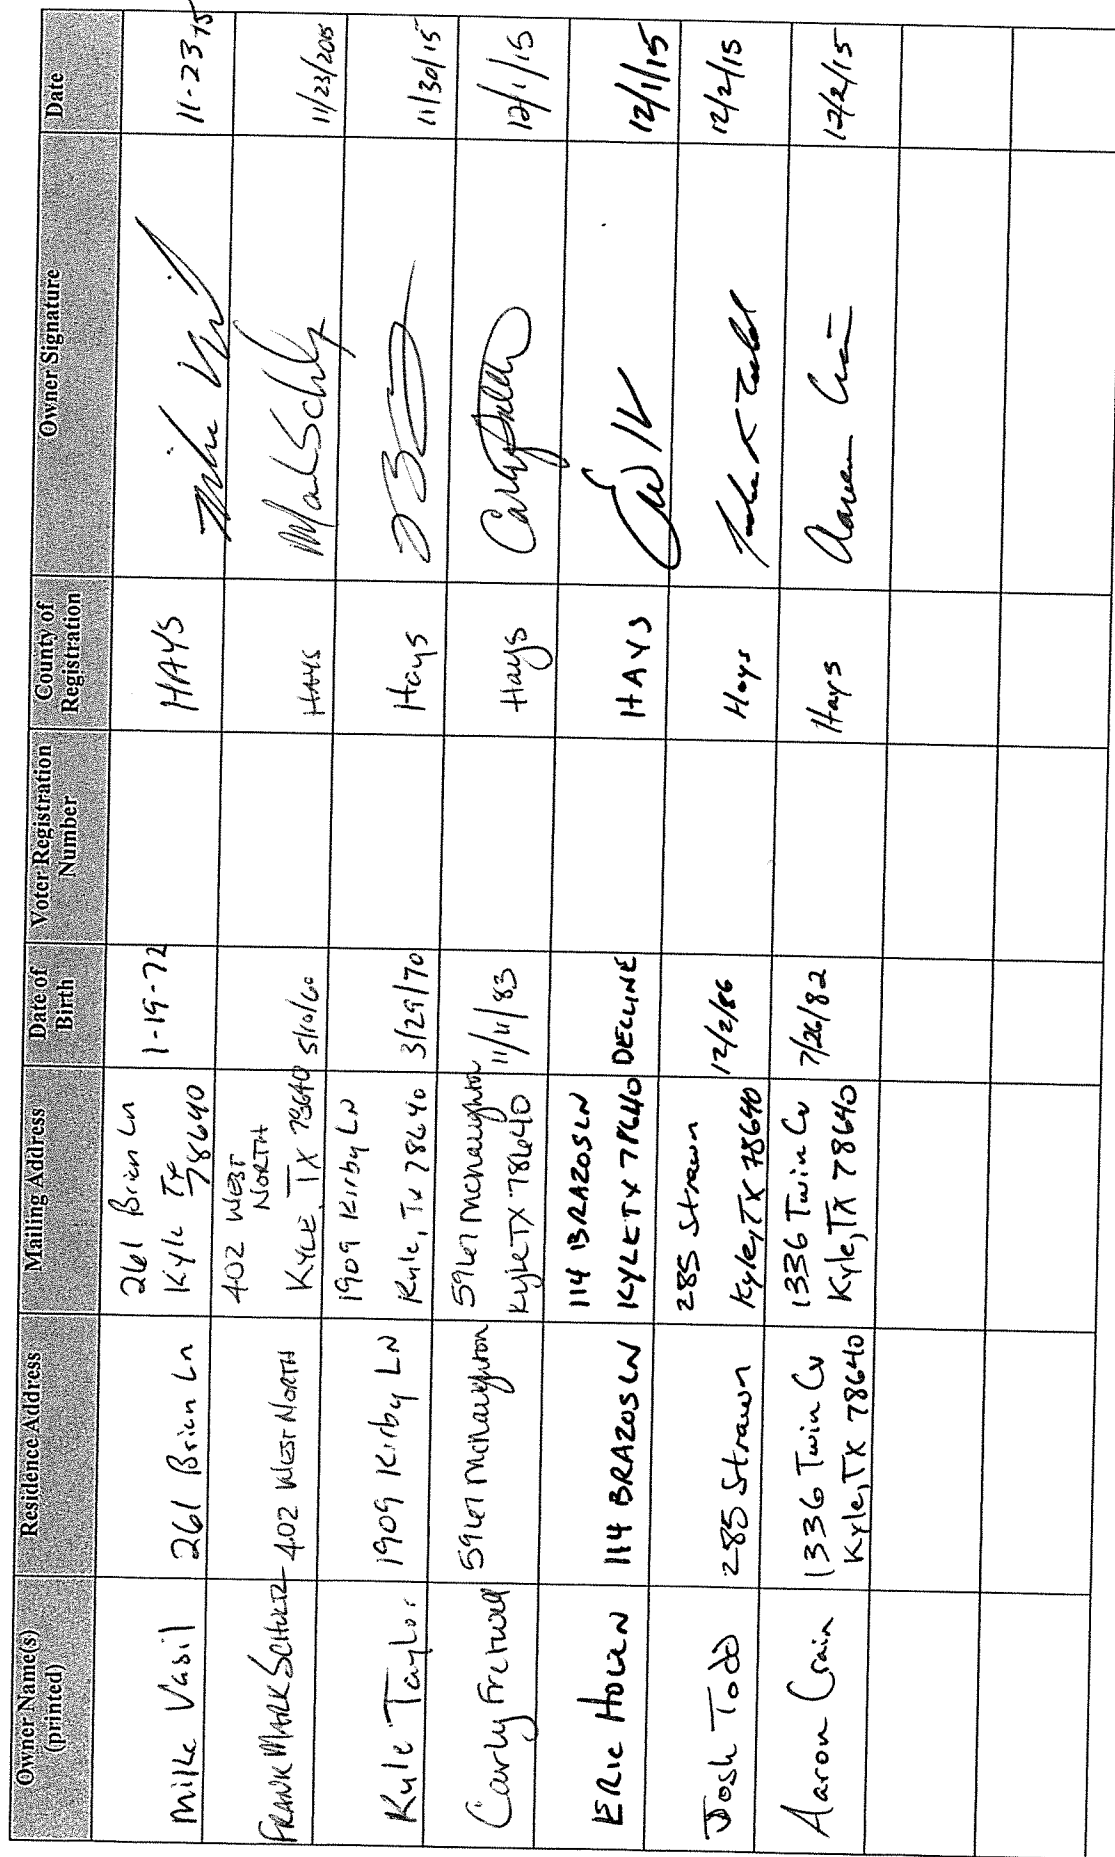 Owner Name(s)
(printed)
Residence Address
Mailing Address
Date of
Birth
Voter Registration
Number
County of
Registration
Owner Signature
Date
Mike Vasil
261 Brian Ln
261 Brian Ln
Kyle Tx
78640
1-19-72
HAYS
11-23-15
FRANK MARK SCHULTZ
402 WEST NORTH
402 WEST
NORTH
KYLE, TX 78640
5/10/60
HAYS
Mark Schultz
11/23/2015
Kyle Taylor
1909 Kirby LN
1909 Kirby LN
Kyle, Tx 78640
3/29/70
Hays
11/30/15
Carly
5967 McNaughton
5967 McNaughton
Kyle TX 78640
11/11/83
Hays
Carly
12/1/15
ERIC
114 BRAZOS LN
114 BRAZOS LN
KYLE TX 78640
DECLINE
HAYS
12/1/15
Josh Todd
285 Strawn
285 Strawn
Kyle, TX 78640
12/2/86
Hays
12/2/15
Aaron Crain
1336 Twin Cv
Kyle, TX 78640
1336 Twin Cv
Kyle, TX 78640
7/26/82
Hays
Aaron Crain
12/2/15